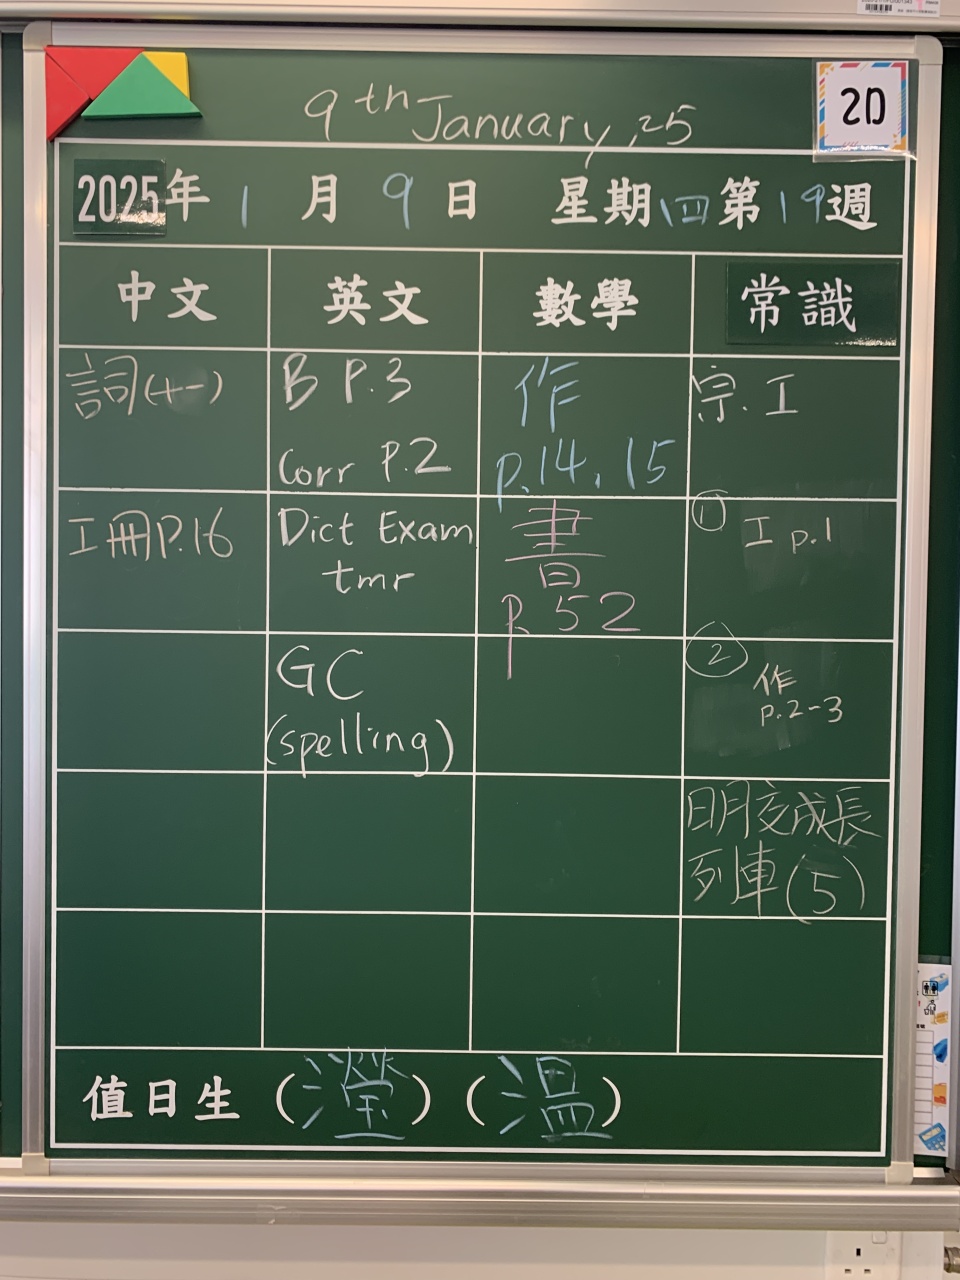 9th January, 25
2D
2025年1月9日 星期四 第19週
中文 英文 數學 常識
詞(十一)
B P.3
Corr P.2
作
p.14, 15
宗.工
工冊P.16
Dict Exam
tmr
書
P. 52
① 工 p.1
GC
(spelling)
② 作
p.2-3
明交成長
列車(5)
值日生 (瀅) (溫)